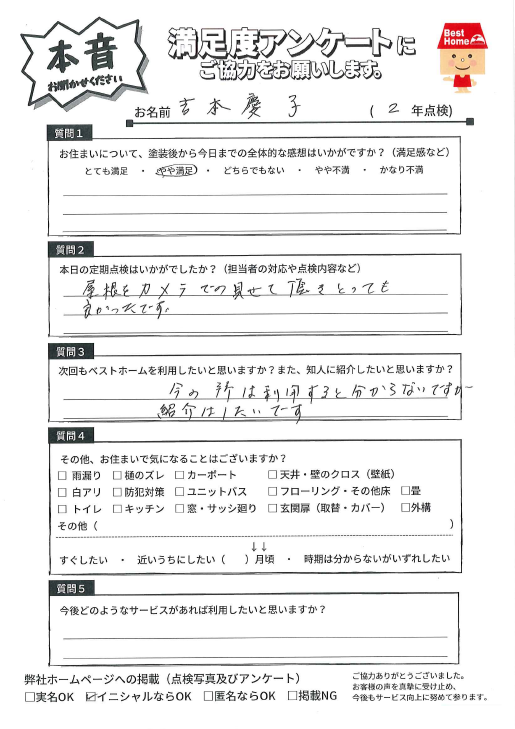 本音
お聞かせください
満足度アンケートに
ご協力をお願いします。
Best
Home
お名前 吉本慶子 ( 2 年点検)
質問1
お住まいについて、塗装後から今日までの全体的な感想はいかがですか?(満足感など)
とても満足 ・ やや満足 ・ どちらでもない ・ やや不満 ・ かなり不満
質問2
本日の定期点検はいかがでしたか?(担当者の対応や点検内容など)
屋根をカメラでの見せて頂きとっても
良かったです。
質問3
次回もベストホームを利用したいと思いますか?また、知人に紹介したいと思いますか?
今の所は利用すると分からないですが
紹介はしたいです
質問4
その他、お住まいで気になることはございますか?
□ 雨漏り □ 樋のズレ □ カーポート □ 天井・壁のクロス(壁紙)
□ 白アリ □ 防犯対策 □ ユニットバス □ フローリング・その他床 □畳
□ トイレ □ キッチン □ 窓・サッシ廻り □ 玄関扉(取替・カバー) □外構
その他( )
↓↓
すぐしたい ・ 近いうちにしたい( )月頃 ・ 時期は分からないがいずれしたい
質問5
今後どのようなサービスがあれば利用したいと思いますか?
弊社ホームページへの掲載(点検写真及びアンケート)
□実名OK ☑イニシャルならOK □匿名ならOK □掲載NG
ご協力ありがとうございました。
お客様の声を真摯に受け止め、
今後もサービス向上に努めて参ります。